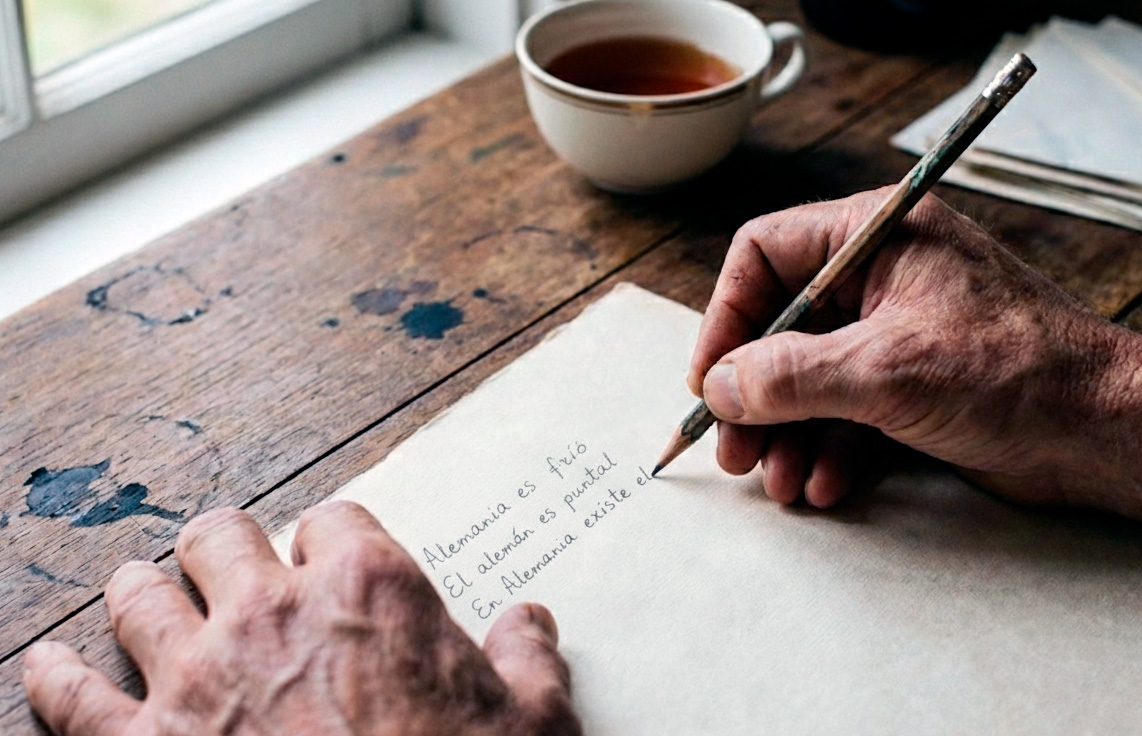 Alemania es frió
El alemán es puntal
En Alemania existe el